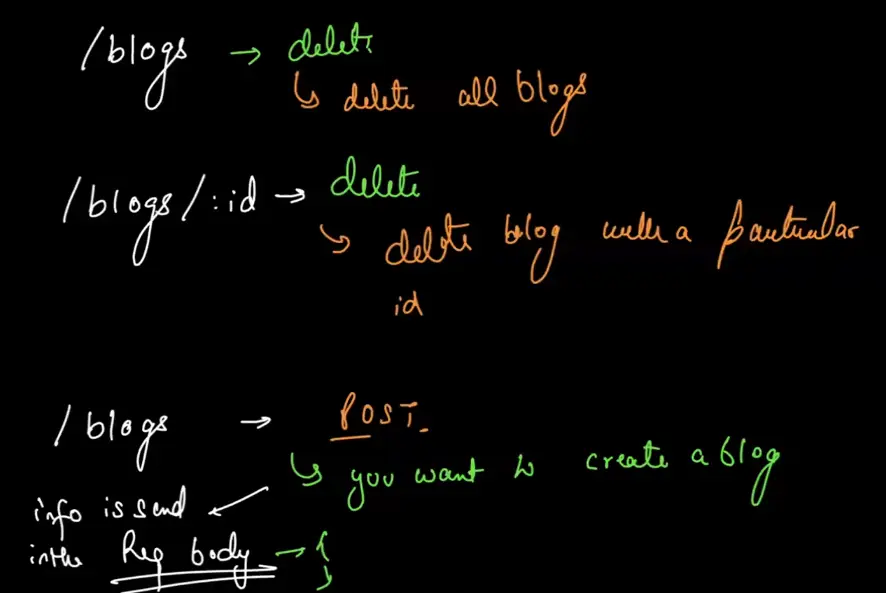 /blogs → delete
↳ delete all blogs
/blogs/:id → delete
↳ delete blog with a particular
id
/blogs → POST.
↳ you want to create a blog
info is send
in the Req body → {
}